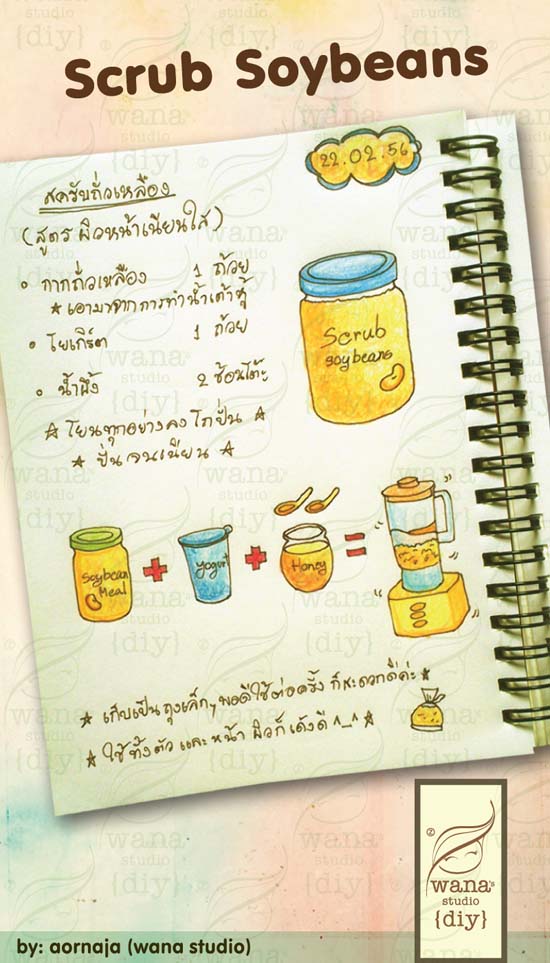 Scrub Soybeans
22.02.56
สครับถั่วเหลือง
(สูตร ผิวหน้าเนียนใส)
กากถั่วเหลือง 1 ถ้วย
★ เอามาจากการทำน้ำเต้าหู้
โยเกิร์ต 1 ถ้วย
น้ำผึ้ง 2 ช้อนโต๊ะ
☆ โยนทุกอย่างลงโถปั่น ☆
☆ ปั่นจนเนียน ☆
Scrub
soybeans
Soybean
Meal
+
yogurt
+
Honey
=
★ เก็บเป็นถุงเล็กๆ พอดีใช้ต่อครั้ง ก็สะดวกดีค่ะ ★
★ ใช้ทั้งตัว และ หน้า ผิวก็เด้งดี ^_^ ★
wana's
studio
{diy}
by: aornaja (wana studio)